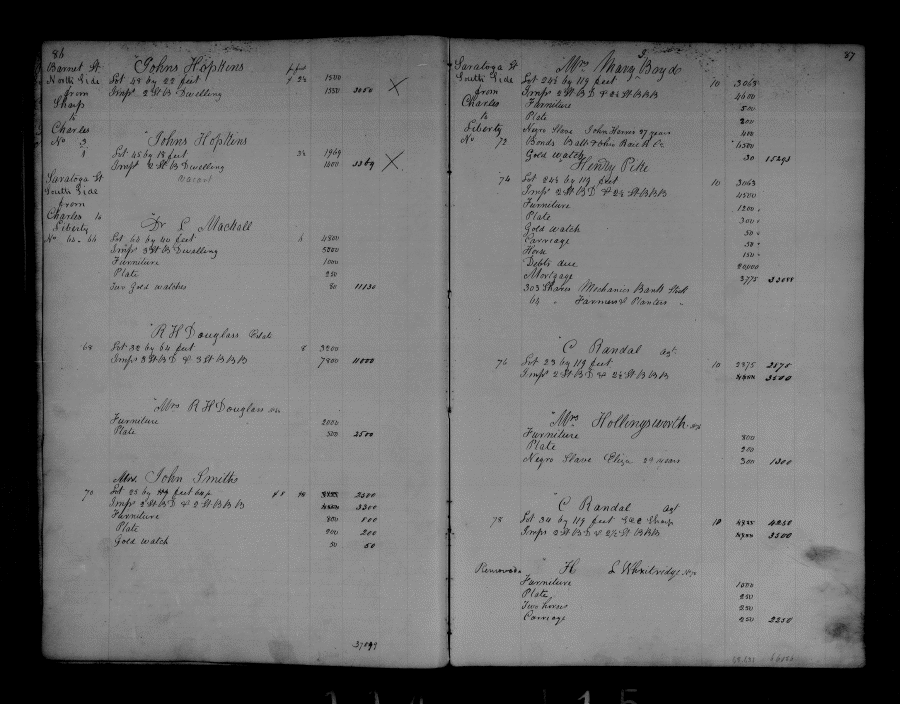 86
Barnet St
North Side
from
Sharp
to
Charles
No 3
Johns Hopkins
Lot 48 by 22 feet 1500
Imps 2 St B Dwelling 1550 3050 X
Johns Hopkins
1 Lot 45 by 18 feet 1969
Imps 2 St B Dwelling 1400 3369 X
Vacant
Saratoga St
South Side
from
Charles to
Liberty
Dr L Mackall
No 64.66 Lot 66 by 40 feet 6 4800
Imps 3 St B Dwelling 5200
Furniture 1000
Plate 250
Two Gold watches 80 11130
R H Douglass Estate
68 Lot 32 by 64 feet 8 3200
Imps 3 St B D & 3 St B B B 7800 11000
Mrs R H Douglass
Furniture 2000
Plate 500 2500
Mrs. John Smith
70 Lot 25 by 119 feet 2500
Imps 2 St B D & 2 St B B B 3300
Furniture 800 800
Plate 200 200
Gold watch 50 50
87
Saratoga St
South Side
from
Charles
to
Liberty
No 72
Mrs Mary Boyd
Lot 24½ by 119 feet 10 3063
Imps 2 St B D & 2½ St B B B 4600
Furniture 500
Plate 200
Negro Slave John Harris 27 years 400
Bonds Balt & Ohio Rail R Co 6500
Gold watch 30 15293
Henry Pike
74 Lot 24½ by 119 feet 10 3063
Imps 2 St B D & 2½ St B B B 4500
Furniture 1200
Plate 300
Gold watch 50
Carriage 50
Horse 150
Debts due 20000
Mortgage 3775
303 Shares Mechanics Bank Stock
66 " Farmers & Planters "
C Randal Agt
76 Lot 23 by 119 feet 10 2875 2875
Imps 2 St B D & 2½ St B B B 3500
Mrs Hollingsworth
Furniture 800
Plate 200
Negro Slave Eliza 29 years 300 1300
C Randal Agt
78 Lot 34 by 119 feet 10 4250
Imps 2 St B D & 2½ St B B B 3500
Removed H
Furniture 1000
Plate 250
Two horses 250
Carriage 2250